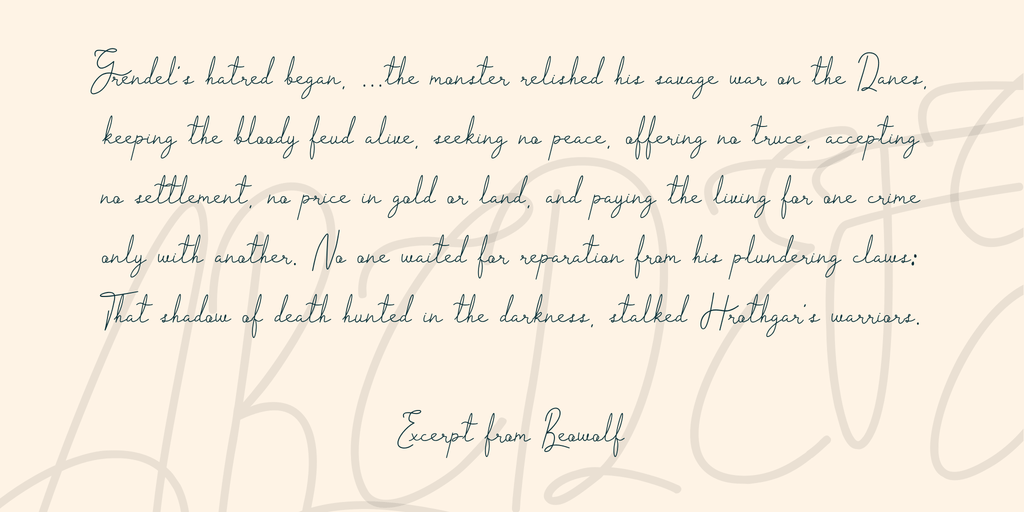 Grendel's hatred began, ...the monster relished his savage war on the Danes,
keeping the bloody feud alive, seeking no peace, offering no truce, accepting
no settlement, no price in gold or land, and paying the living for one crime
only with another. No one waited for reparation from his plundering claws:
That shadow of death hunted in the darkness, stalked Hrothgar's warriors.
Excerpt from Beowolf
ABCDEFG